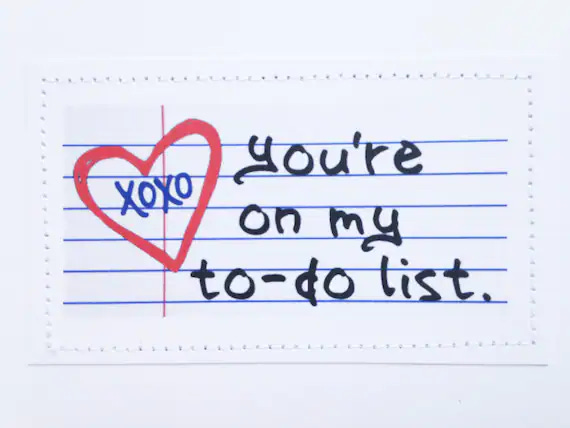 xoxo
you're
on my
to-do list.